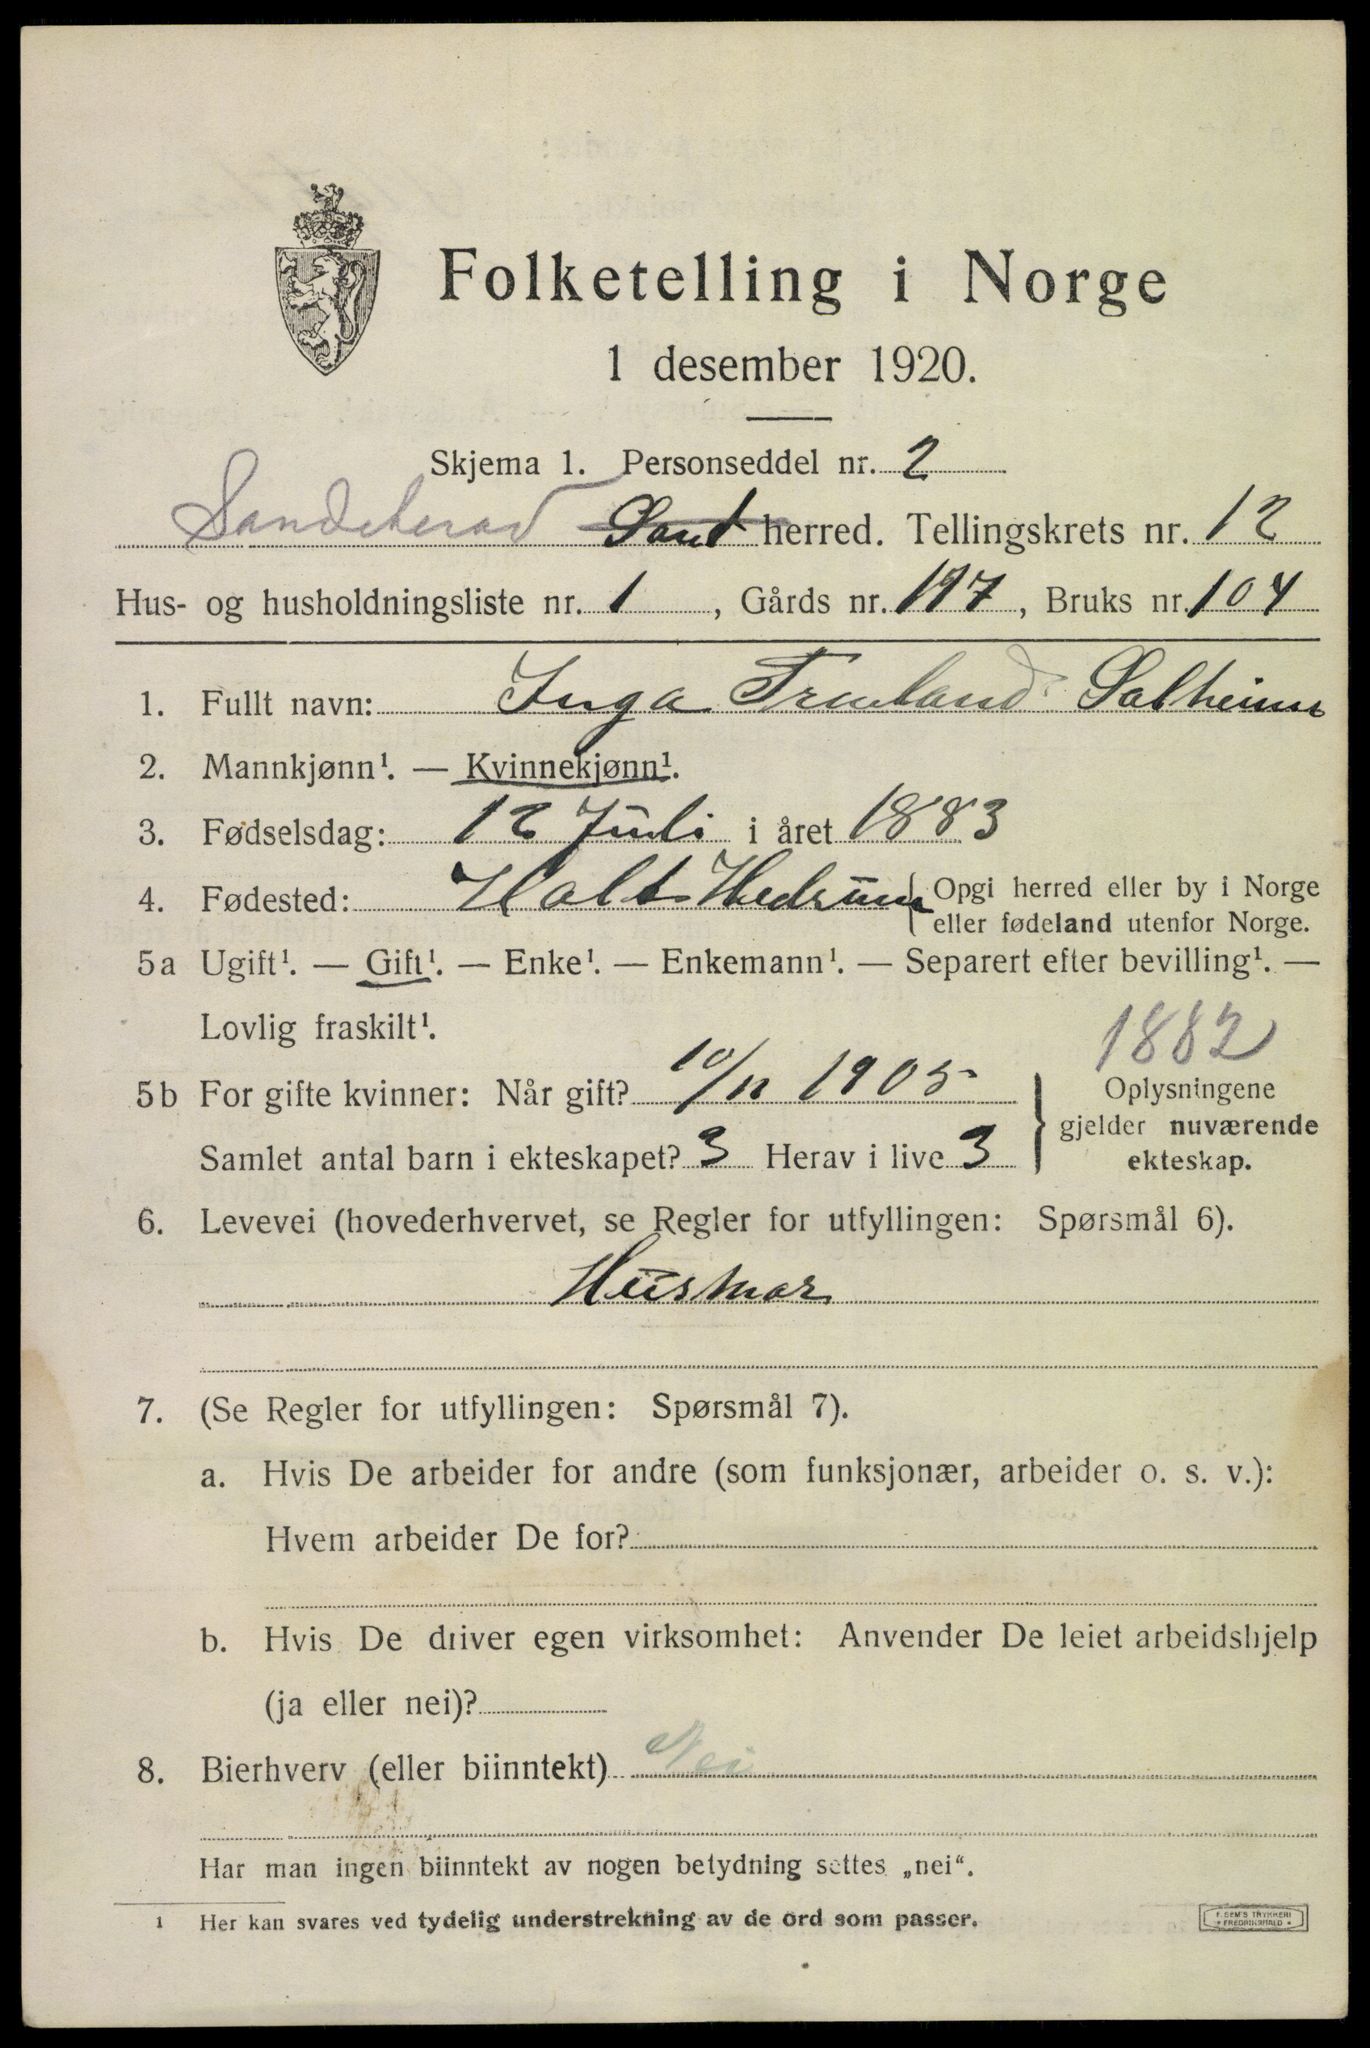 Folketelling i Norge
1 desember 1920.
Skjema 1. Personseddel nr. 2
Sandeherad Sand herred. Tellingskrets nr. 12
Hus- og husholdningsliste nr. 1, Gårds nr. 197, Bruks nr. 104
1. Fullt navn: Inga Solheim
2. Mannkjønn¹. — Kvinnekjønn¹.
3. Fødselsdag: 12 Juli i året 1883
4. Fødested: Holt Hedrum Opgi herred eller by i Norge
eller fødeland utenfor Norge.
5a Ugift¹. — Gift¹. — Enke¹. — Enkemann¹. — Separert efter bevilling¹. —
Lovlig fraskilt¹.
1882
5b For gifte kvinner: Når gift? 10/11 1905 Oplysningene
gjelder nuværende
Samlet antal barn i ekteskapet? 3 Herav i live 3 ekteskap.
6. Levevei (hovederhvervet, se Regler for utfyllingen: Spørsmål 6).
Husmor
7. (Se Regler for utfyllingen: Spørsmål 7).
a. Hvis De arbeider for andre (som funksjonær, arbeider o. s. v.):
Hvem arbeider De for?
b. Hvis De driver egen virksomhet: Anvender De leiet arbeidshjelp
(ja eller nei)?
8. Bierhverv (eller biinntekt) Nei
Har man ingen biinntekt av nogen betydning settes „nei“.
¹ Her kan svares ved tydelig understrekning av de ord som passer.
F. SEM'S TRYKKERI
FREDRIKSHALD